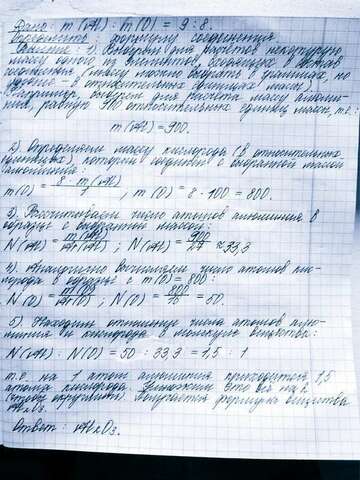 Дано: m(Al) : m(O) = 9 : 8.
Определить формулу соединения
Решение: 1). Выбираем для расчётов некоторую
массу одного из элементов, входящих в состав
соединения (массу можно выбрать в граммах, но
в относительных единицах массы).
Например, выберем для расчёта массу алюми-
ния, равную 900 относительных единиц массы, т.е.:
m(Al) = 900.
2) Определяем массу кислорода (в относительных
единицах), который соединён с выбранной массой
алюминия:
m(O) = 8 · m(Al) / 9 , m(O) = 8 · 100 = 800.
3) Рассчитываем число атомов алюминия в
образце с выбранной массой:
N(Al) = m(Al) / Ar(Al) ; N(Al) = 900 / 27 ≈ 33,3
4) Аналогично вычисляем число атомов кис-
лорода в образце с m(O) = 800:
N(O) = m(O) / Ar(O) ; N(O) = 800 / 16 = 50.
5) Находим отношение числа атомов алю-
миния и кислорода в молекуле вещества:
N(Al) : N(O) = 50 : 33,3 = 1,5 : 1
т.е. на 1 атом алюминия приходится 1,5
атома кислорода. Умножаем это всё на 2
(чтобы округлить). Получается формула вещества
Al₂O₃.
Ответ: Al₂O₃.